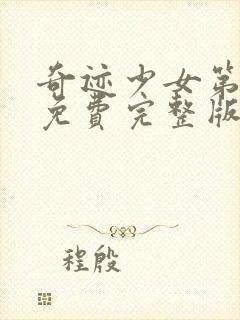 奇迹少女第
免费完整版
程殷